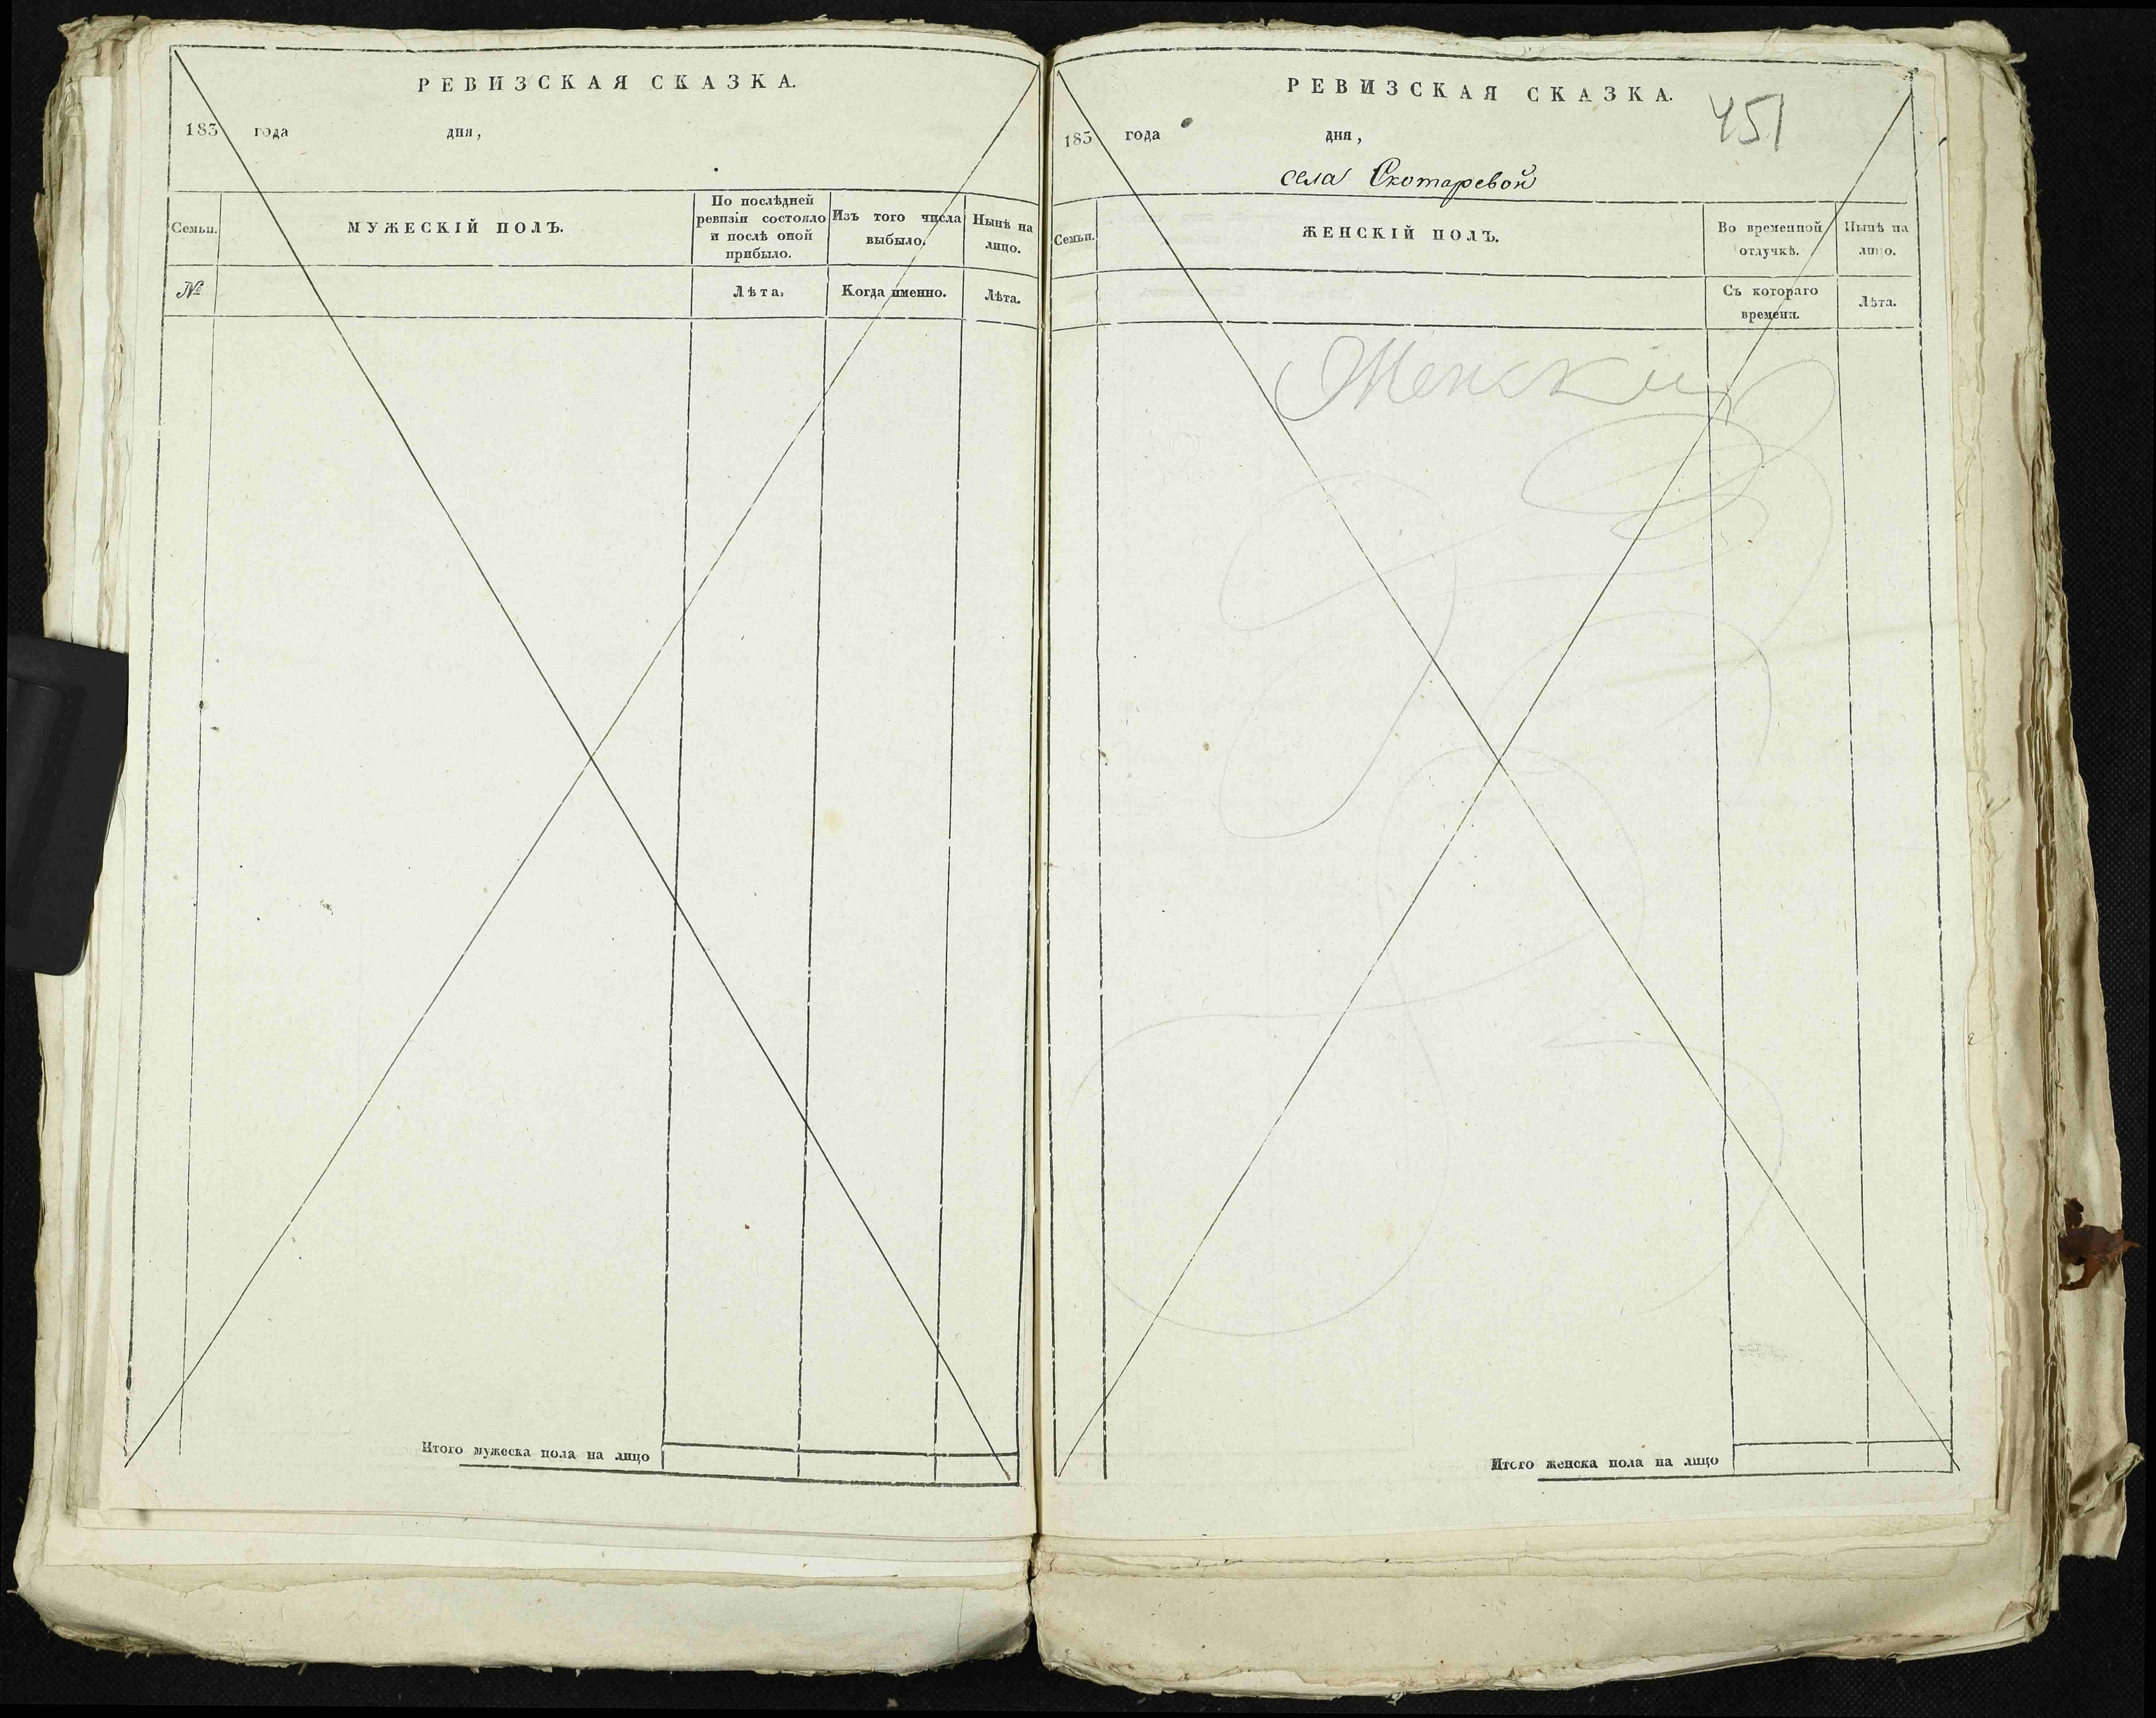 РЕВИЗСКАЯ СКАЗКА.
183 года дня,
Семьи.
МУЖЕСКІЙ ПОЛЪ.
По послѣдней
ревизіи состояло
и послѣ оной
прибыло.
Изъ того числа
выбыло.
Нынѣ на
лицо.
№
Лѣта.
Когда именно.
Лѣта.
Итого мужеска пола на лицо
РЕВИЗСКАЯ СКАЗКА.
451
183 года дня,
села Скотаревой
Семьи.
ЖЕНСКІЙ ПОЛЪ.
Во временной
отлучкѣ.
Нынѣ на
лицо.
Съ котораго
времени.
Лѣта.
Женскій
Итого женска пола на лицо